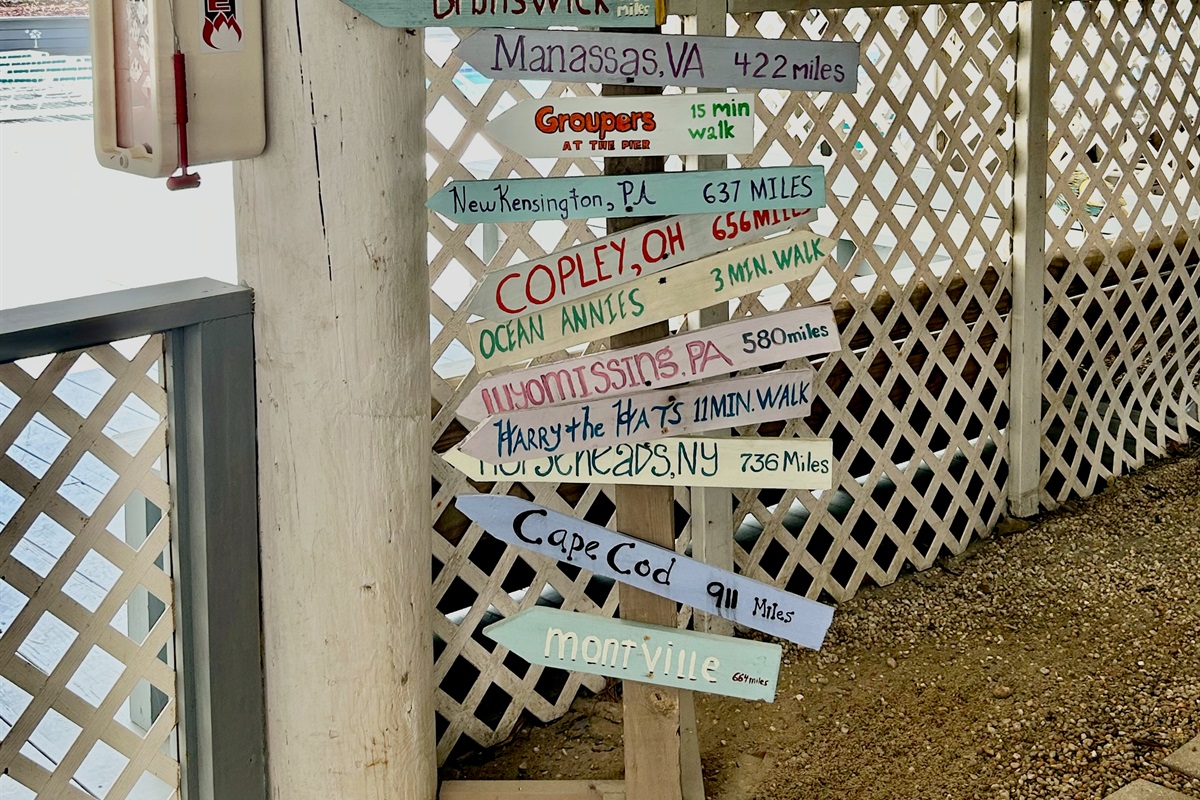 Brunswick miles
Manassas, VA 422 miles
Groupers 15 min
AT THE PIER walk
New Kensington, PA 637 MILES
COPLEY, OH 656 MILES
OCEAN ANNIES 3 MIN. WALK
Wyomissing, PA 580 miles
HARRY & the HATS 11 MIN. WALK
Horseheads, NY 736 Miles
Cape Cod 911 Miles
montville 664 miles